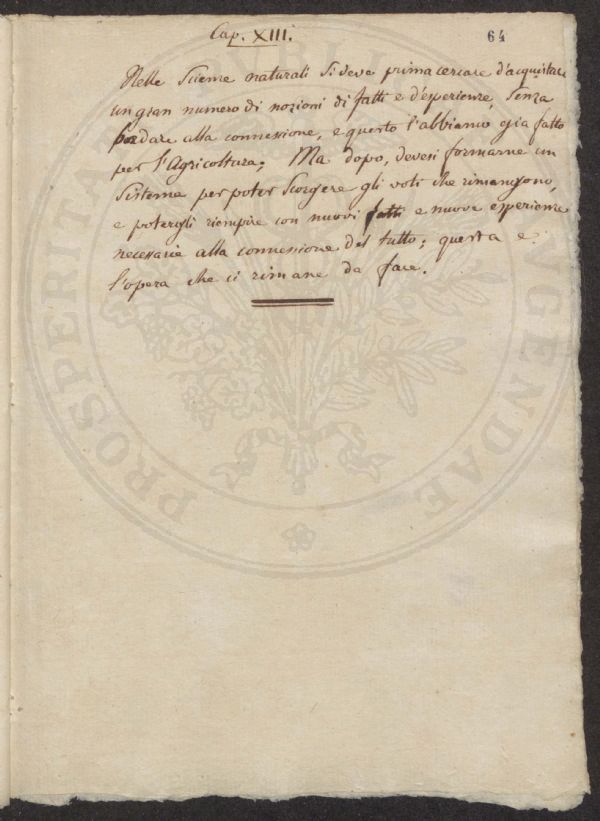 Cap. XIII.
64
Nelle Scienze naturali si deve prima cercare d'acquistare
un gran numero di nozioni di fatti e d'esperienze, senza
badare alla connessione, e questo l'abbiamo gia fatto
per l'Agricoltura; Ma dopo, devesi formarne un
Sistema per poter Scorgere gli voti che rimangono,
e potergli riempire con nuovi fatti e nuove esperienze
necessarie alla connessione del tutto; questa e
l'opera che ci rimane da fare.
PROSPERITATI PUBLICAE AUGENDAE